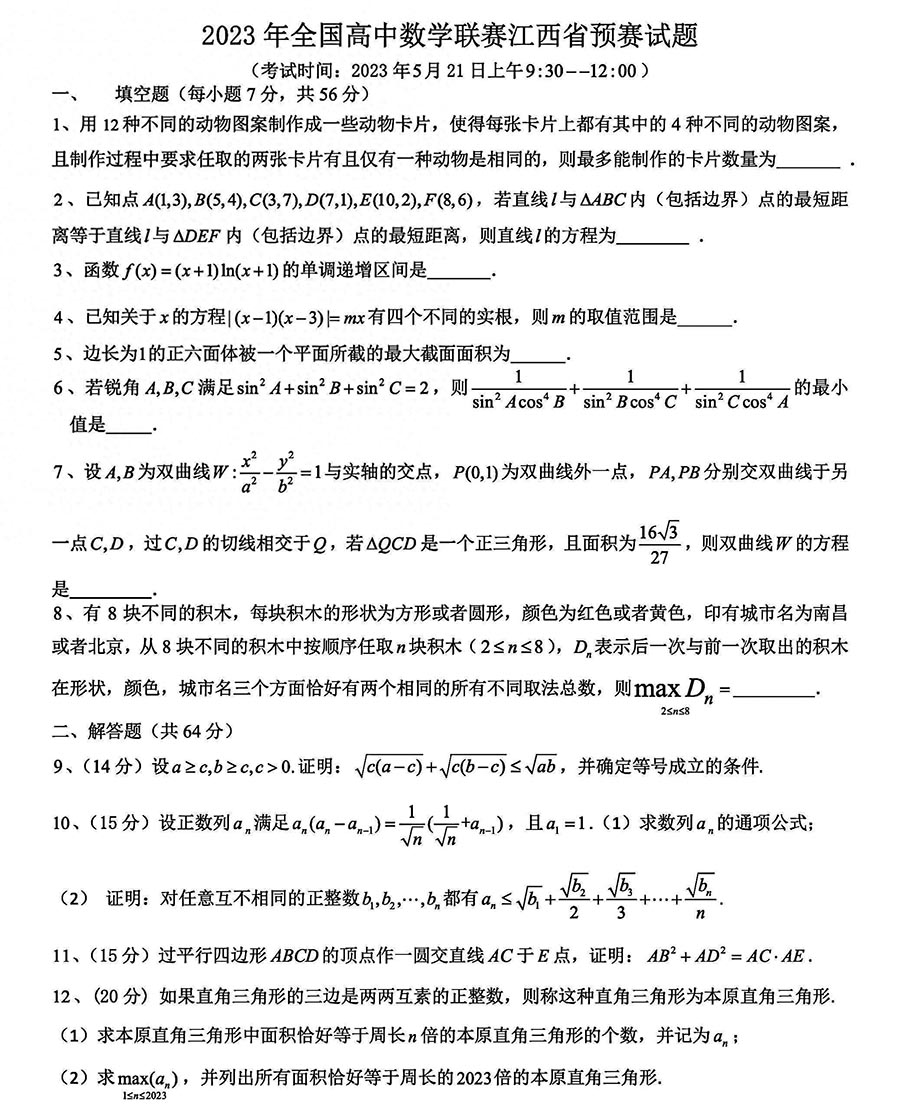 2023 年全国高中数学联赛江西省预赛试题
（考试时间：2023 年5月 21 日上午9:30--12:00）
一、 填空题（每小题 7 分，共 56 分）
1、用 12 种不同的动物图案制作成一些动物卡片，使得每张卡片上都有其中的 4 种不同的动物图案，
且制作过程中要求任取的两张卡片有且仅有一种动物是相同的，则最多能制作的卡片数量为_______ .
2、已知点 A(1,3), B(5,4), C(3,7), D(7,1), E(10,2), F(8,6)，若直线 l 与 ΔABC 内（包括边界）点的最短距
离等于直线 l 与 ΔDEF 内（包括边界）点的最短距离，则直线 l 的方程为________ .
3、函数 f(x) = (x+1)ln(x+1) 的单调递增区间是_______.
4、已知关于 x 的方程 |(x-1)(x-3)|= mx 有四个不同的实根，则 m 的取值范围是______.
5、边长为1的正六面体被一个平面所截的最大截面面积为______.
6、若锐角 A,B,C 满足 sin² A + sin² B + sin² C = 2，则 1/(sin² A cos⁴ B) + 1/(sin² B cos⁴ C) + 1/(sin² C cos⁴ A) 的最小
值是_____.
7、设 A,B 为双曲线 W : x²/a² - y²/b² = 1 与实轴的交点，P(0,1) 为双曲线外一点，PA, PB 分别交双曲线于另
一点 C, D，过 C, D 的切线相交于 Q，若 ΔQCD 是一个正三角形，且面积为 16√3/27，则双曲线 W 的方程
是_________.
8、有 8 块不同的积木，每块积木的形状为方形或者圆形，颜色为红色或者黄色，印有城市名为南昌
或者北京，从 8 块不同的积木中按顺序任取 n 块积木（2≤n≤8），Dₙ 表示后一次与前一次取出的积木
在形状，颜色，城市名三个方面恰好有两个相同的所有不同取法总数，则 max Dₙ =_________.
2≤n≤8
二、解答题（共 64 分）
9、（14 分）设 a ≥ c, b ≥ c, c > 0. 证明：√(c(a-c)) + √(c(b-c)) ≤ √(ab)，并确定等号成立的条件.
10、（15 分）设正数列 aₙ 满足 aₙ(aₙ - aₙ₋₁) = 1/√n (1/√n + aₙ₋₁)，且 a₁ = 1.（1）求数列 aₙ 的通项公式；
（2） 证明：对任意互不相同的正整数 b₁, b₂, ⋯, bₙ 都有 aₙ ≤ √b₁ + √b₂/2 + √b₃/3 + ⋯ + √bₙ/n.
11、（15 分）过平行四边形 ABCD 的顶点作一圆交直线 AC 于 E 点，证明：AB² + AD² = AC · AE .
12、(20 分) 如果直角三角形的三边是两两互素的正整数，则称这种直角三角形为本原直角三角形.
（1）求本原直角三角形中面积恰好等于周长 n 倍的本原直角三角形的个数，并记为 aₙ；
（2）求 max(aₙ)，并列出所有面积恰好等于周长的 2023 倍的本原直角三角形.
1≤n≤2023